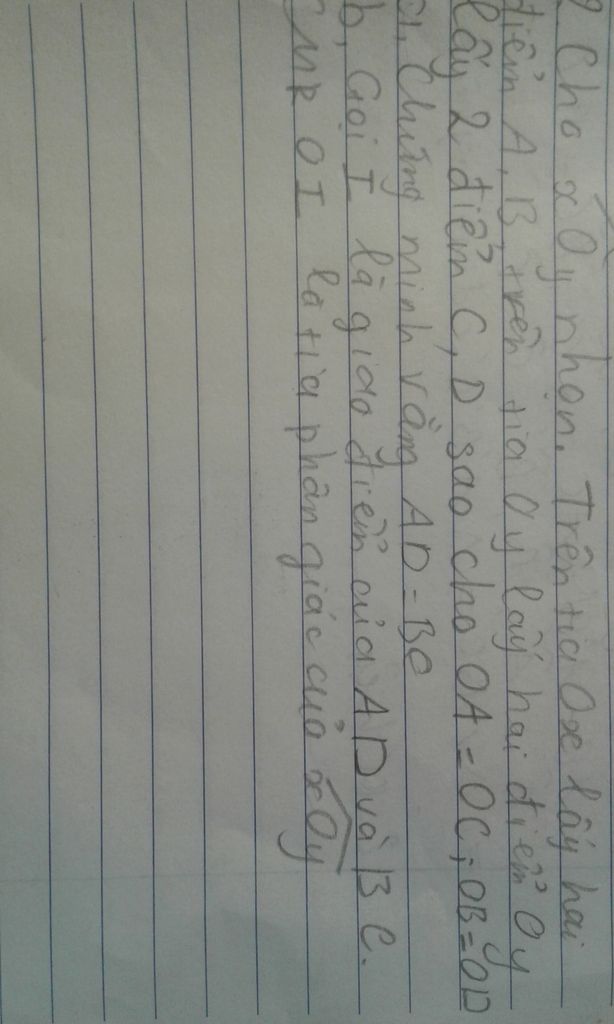 2 Cho xOy nhọn. Trên tia Ox lấy hai
điểm A, B, trên tia Oy lấy hai điểm Oy
lấy 2 điểm C, D sao cho OA = OC; OB = OD
a, Chứng minh rằng AD = BC
b, Gọi I là giao điểm của AD và BC.
CMR OI là tia phân giác của xOy